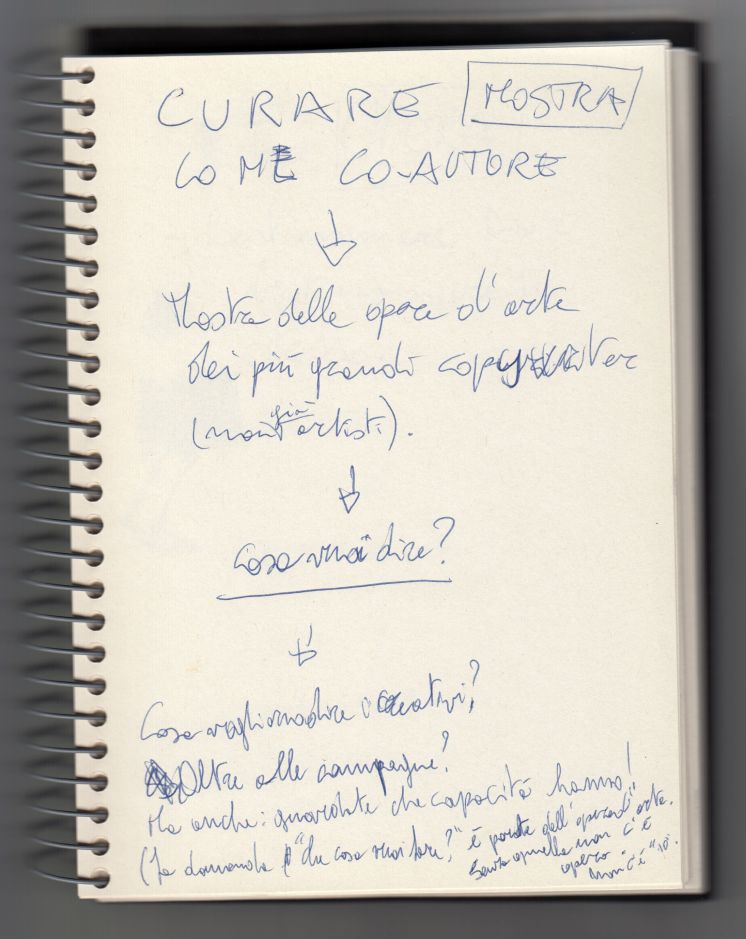 CURARE MOSTRA
COME CO-AUTORE
Mostra delle opere d'arte
dei più grandi copywriter
(non già artisti).
Cosa vuoi dire?
Cosa vogliono dire i creativi?
Oltre alle campagne?
Ma anche: guardate che capacità hanno!
(La domanda "che cosa vuoi fare?" è parte dell'opera d'arte.
Senza quella non c'è
opera.
Non c'è "io".